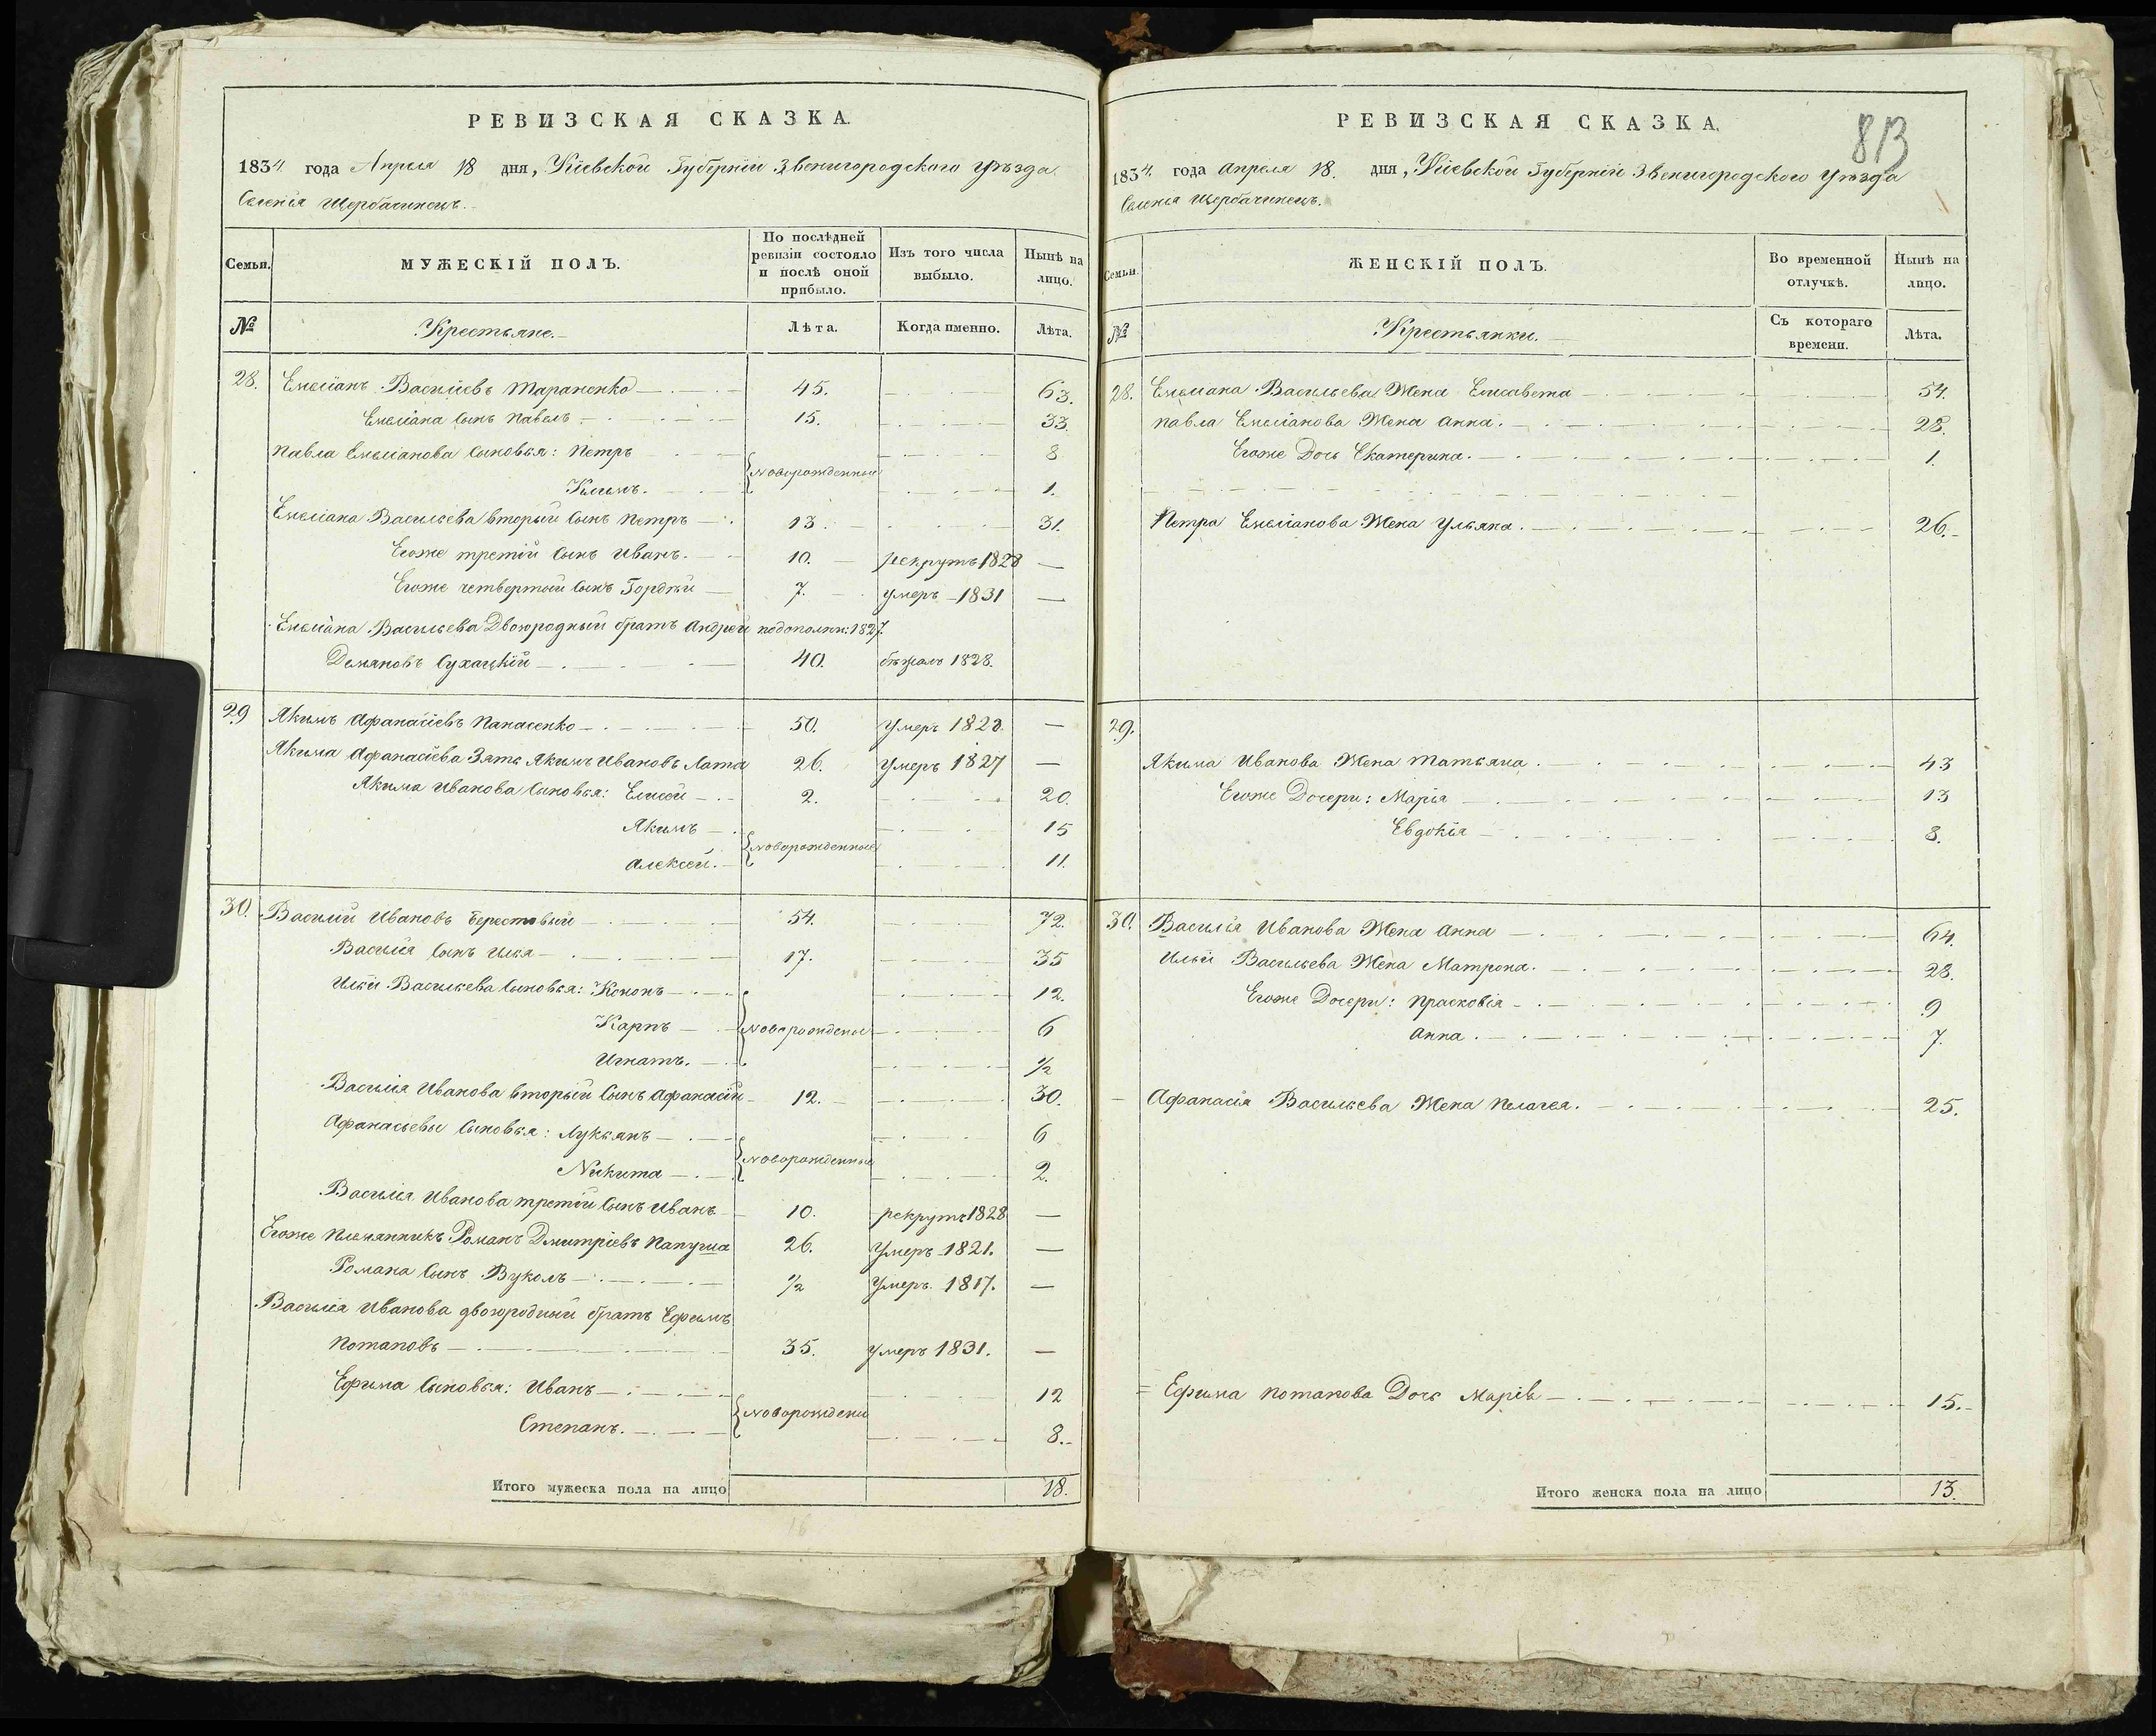 РЕВИЗСКАЯ СКАЗКА.
1834 года Апреля 18 дня, Кіевской Губерніи Звенигородского Уѣзда
Селенія Щербачинецъ.
Семьи. МУЖЕСКІЙ ПОЛЪ. По послѣдней ревизіи состояло и послѣ оной прибыло. Изъ того числа выбыло. Нынѣ на лицо.
№ Крестьяне. Лѣта. Когда именно. Лѣта.
28. Емеліанъ Васильевъ Тараненко 45. 63.
Емеліана Сынъ Павелъ 15. 33.
Павла Емеліанова Сыновья: Петръ 8
новорожденные
Климъ. 1.
Емеліана Васильева вторый Сынъ Петръ 13. 31.
Егоже третій Сынъ Иванъ. 10. рекрутъ 1828 —
Егоже четвертый Сынъ Гордѣй 7. умеръ 1831 —
Емеліана Васильева Двоюродный братъ Андрей подополнн: 1827.
Демяновъ Сухацкій 40. бѣжалъ 1828.
29 Якимъ Афанасіевъ Панасенко 50. Умеръ 1828. —
Якима Афанасіева Зять Якимъ Ивановъ Лата 26. Умеръ 1827 —
Якима Иванова Сыновья: Елисей 2. 20.
Якимъ 15
новорожденные
Алексей. 11.
30. Василій Ивановъ Берестовый 54. 72.
Василія Сынъ Илья 17. 35
Ильи Васильева Сыновья: Кононъ 12.
Карпъ новорожденые 6
Игнатъ. 1/2
Василія Иванова вторый Сынъ Афанасій 12. 30.
Афанасьевы Сыновья: Лукьянъ 6
новорожденные
Никита 2.
Василія Иванова третій Сынъ Иванъ 10. рекрутъ 1828 —
Егоже Племянникъ Романъ Дмитріевъ Папуша 26. Умеръ 1821. —
Романа Сынъ Вуколъ 1/2 Умеръ 1817. —
Василія Иванова двоюродный братъ Ефимъ
Потаповъ 35. умеръ 1831. —
Ефима Сыновья: Иванъ 12
новорождени
Степанъ. 8.
Итого мужеска пола на лицо 18.
813
РЕВИЗСКАЯ СКАЗКА.
1834 года Апреля 18. дня, Кіевской Губерніи Звенигородского Уѣзда
Селенія Щербачинецъ.
Семьи. ЖЕНСКІЙ ПОЛЪ. Во временной отлучкѣ. Нынѣ на лицо.
№ Крестьянки. Съ котораго времени. Лѣта.
28. Емельяна Васильева Жена Елисавета 54.
Павла Емеліанова Жена Анна. 28.
Егоже Дочь Екатерина. 1.
Петра Емеліанова Жена Ульяна. 26.
29.
Якима Иванова Жена Татьяна. 43
Егоже Дочери: Марія 13
Евдокія 8.
30. Василія Иванова Жена Анна 64.
Ильи Васильева Жена Матрона. 28.
Егоже Дочери: Прасковія 9
Анна. 7.
Афанасія Васильева Жена Пелагея. 25.
Ефима Потапова Дочь Марія 15.
Итого женска пола на лицо 13.